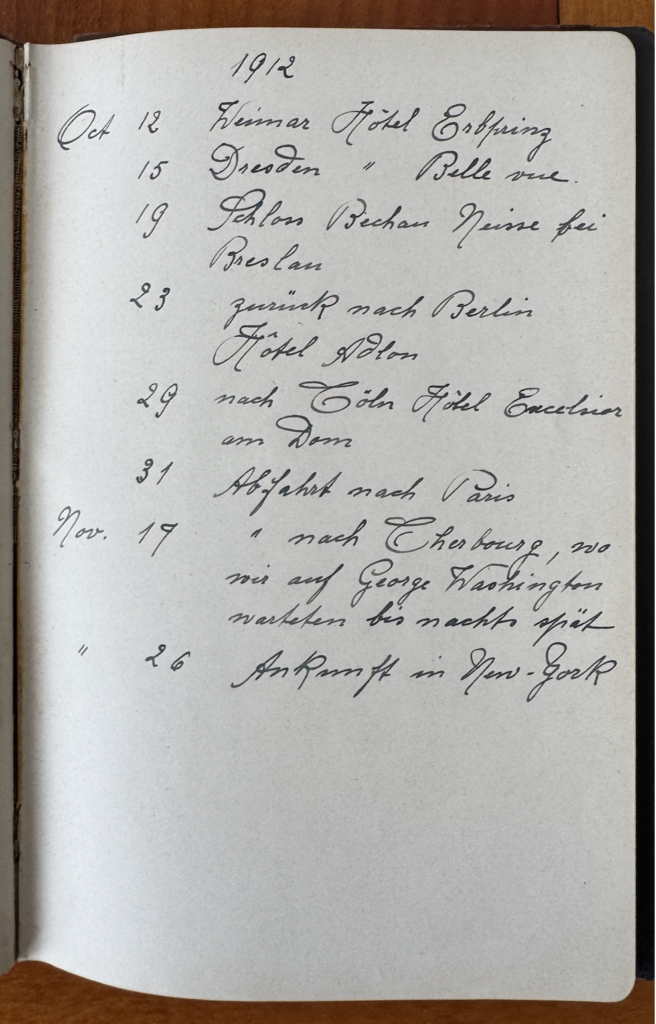 1912
Oct 12 Weimar Hôtel Erbprinz
15 Dresden " Belle vue.
19 Schloss Bechau Neisse bei
Breslau
23 zurück nach Berlin
Hôtel Adlon
29 nach Cöln Hôtel Excelsior
am Dom
31 Abfahrt nach Paris
Nov. 17 " nach Cherbourg, wo
wir auf George Washington
warteten bis nachts spät
" 26 Ankunft in New-York